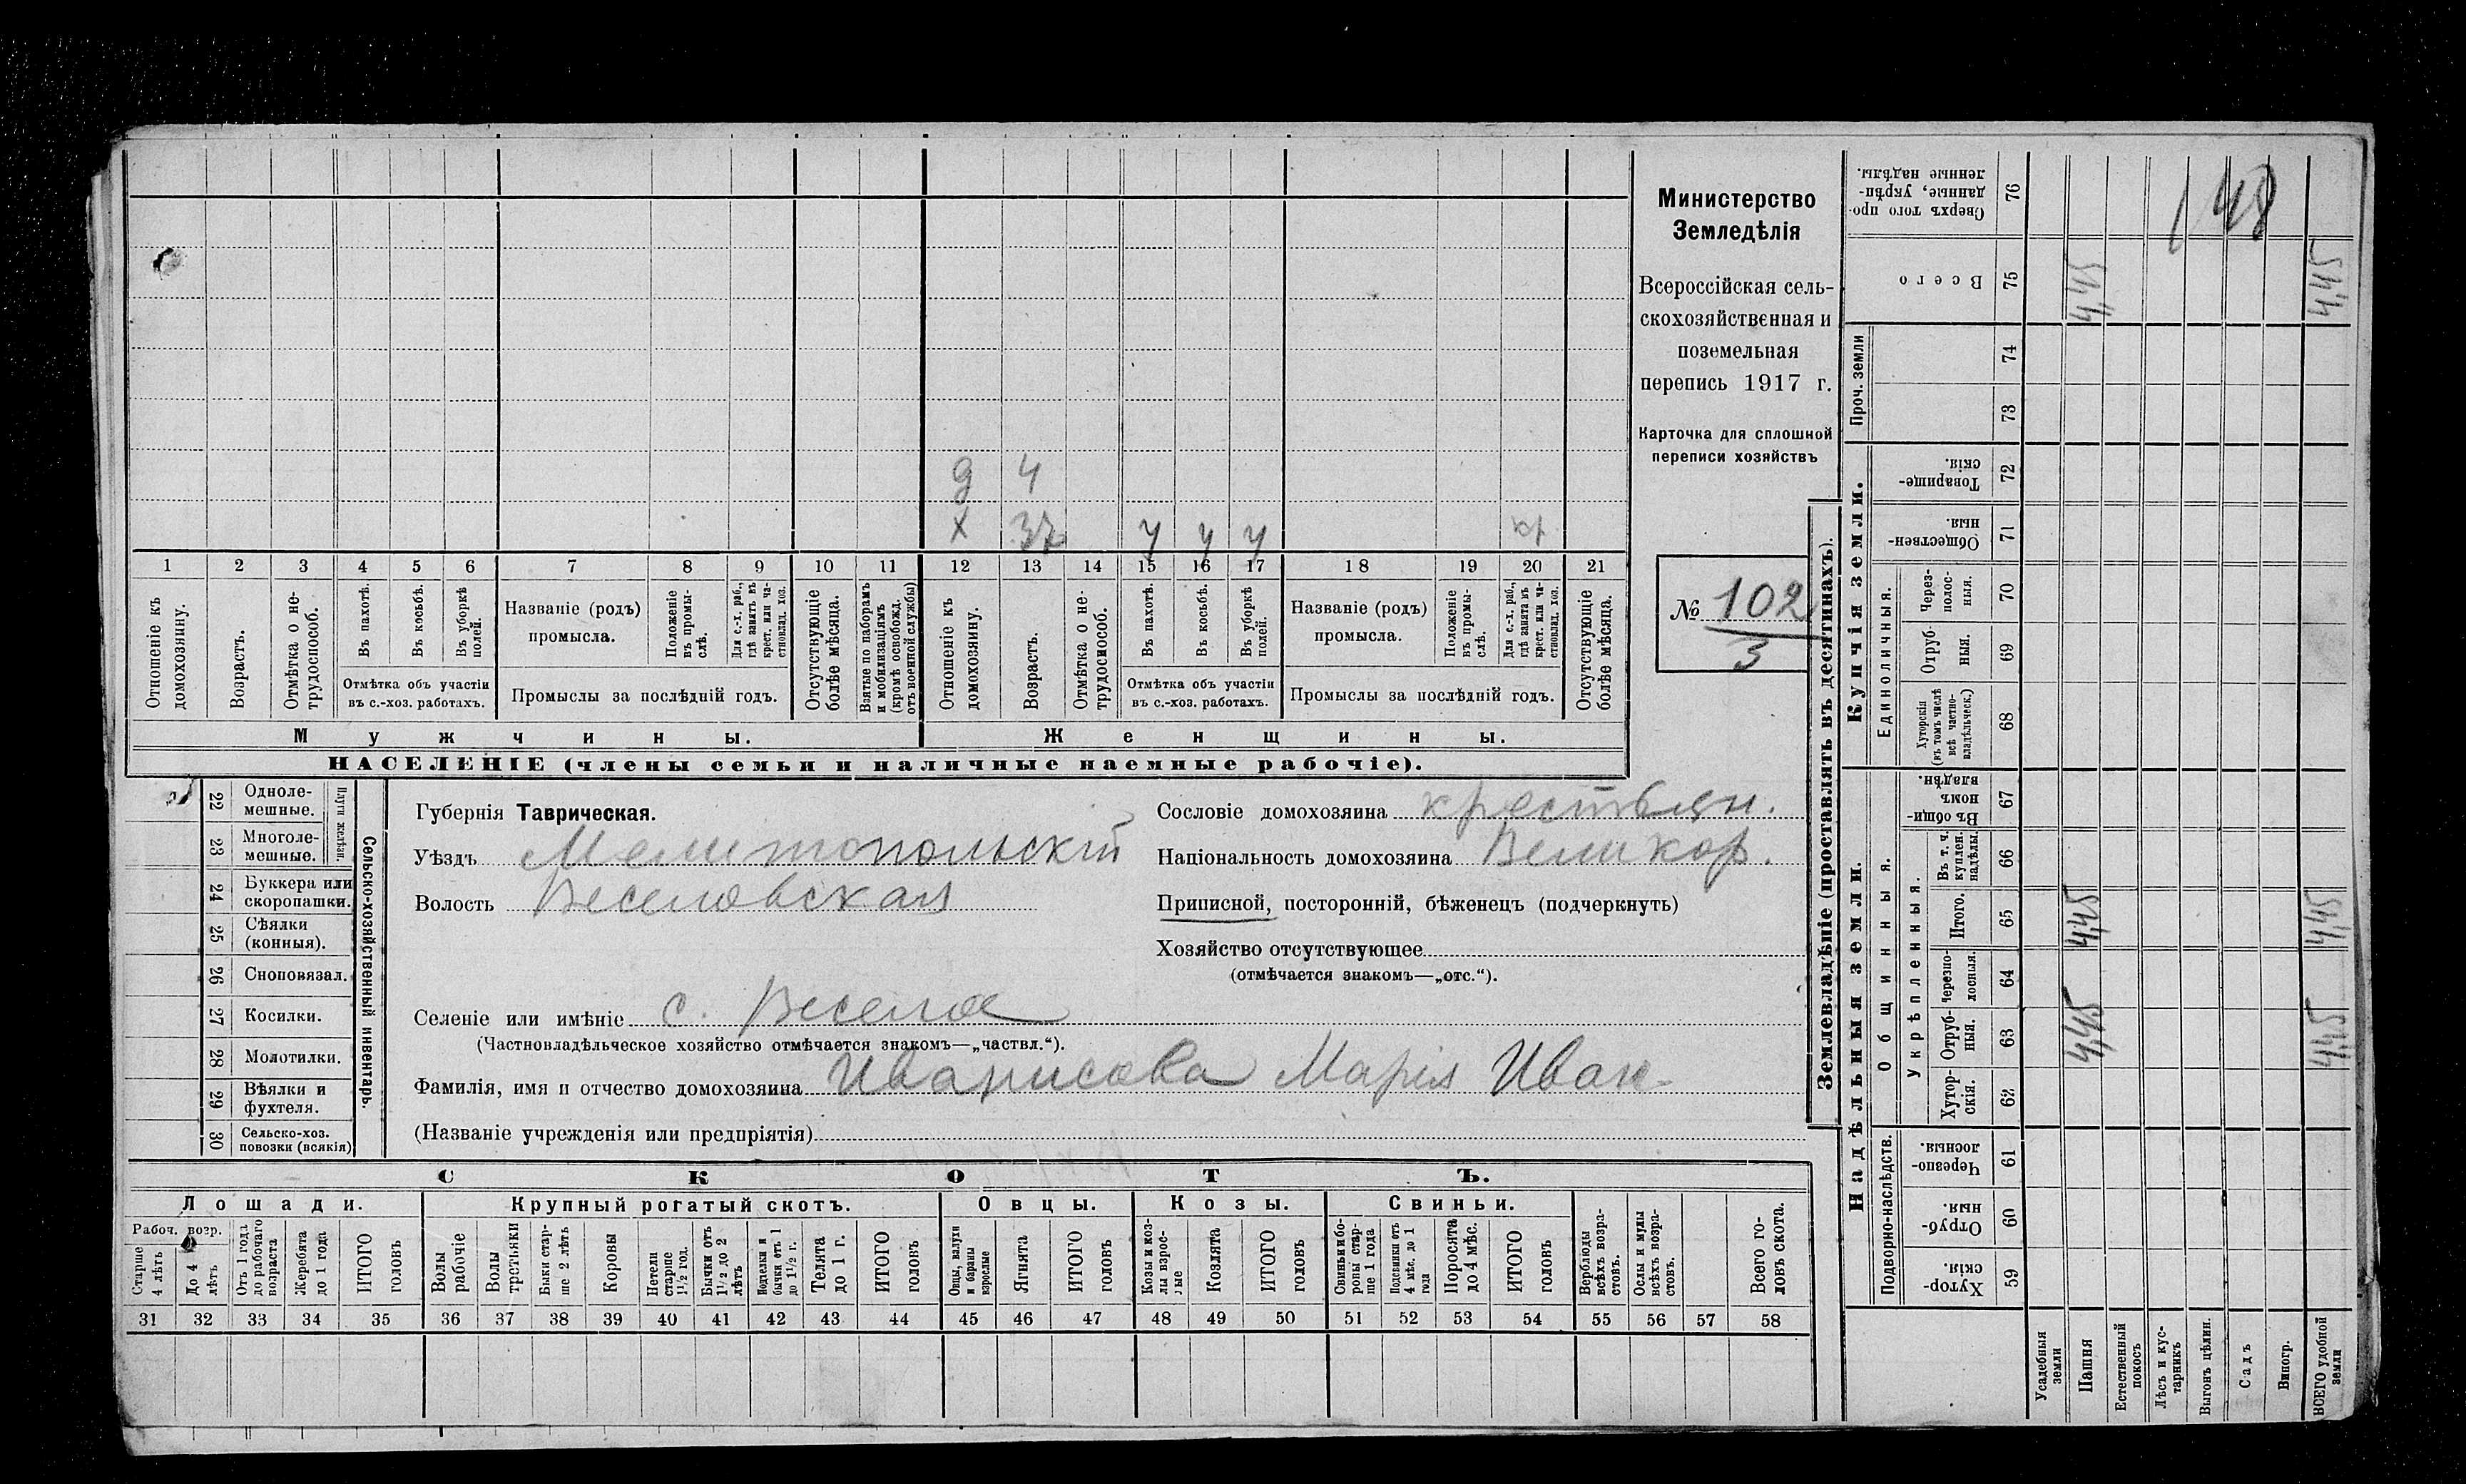 Министерство
Земледѣлія
Всероссійская сель-
скохозяйственная и
поземельная
перепись 1917 г.
Карточка для сплошной
переписи хозяйствъ
№ 102
3
148
д 4
х 37 у у у кр
1 2 3 4 5 6 7 8 9 10 11 12 13 14 15 16 17 18 19 20 21
Отношеніе къ домохозяину.
Возрастъ.
Отмѣтка о не-трудоспособ.
Въ пахотѣ.
Въ косьбѣ.
Въ уборкѣ полей.
Отмѣтка объ участіи
въ с.-хоз. работахъ.
Названіе (родъ)
промысла.
Положеніе въ промы-слѣ.
Для с.-х. раб., гдѣ занятъ въ крест. или ча-стновлад. хоз.
Промыслы за послѣдній годъ.
Отсутствующіе болѣе мѣсяца.
Взятые по наборамъ и мобилизаціямъ (кромѣ освобожд. отъ военной службы)
Отношеніе къ домохозяину.
Возрастъ.
Отмѣтка о не-трудоспособ.
Въ пахотѣ.
Въ косьбѣ.
Въ уборкѣ полей.
Отмѣтка объ участіи
въ с.-хоз. работахъ.
Названіе (родъ)
промысла.
Положеніе въ промы-слѣ.
Для с.-х. раб., гдѣ занята въ крест. или ча-стновлад. хоз.
Промыслы за послѣдній годъ.
Отсутствующіе болѣе мѣсяца.
Мужчины.
Женщины.
НАСЕЛЕНІЕ (члены семьи и наличные наемные рабочіе).
22 Однолe-мешные.
23 Многоле-мешные.
Плуги желѣзн.
24 Буккера или скоропашки.
25 Сѣялки (конныя).
26 Сноповязал.
27 Косилки.
28 Молотилки.
29 Вѣялки и фухтеля.
30 Сельско-хоз. повозки (всякія)
Сельско-хозяйственный инвентарь.
Губернія Таврическая.
Уѣздъ Мелитопольскій
Волость Веселовская
Сословіе домохозяина крестьян.
Національность домохозяина Великор.
Приписной, посторонній, бѣженецъ (подчеркнуть)
Хозяйство отсутствующее
(отмѣчается знакомъ—„отс.“).
Селеніе или имѣніе с. Веселое
(Частновладѣльческое хозяйство отмѣчается знакомъ—„частвл.“).
Фамилія, имя и отчество домохозяина Иванисова Марія Иван
(Названіе учрежденія или предпріятія)
СКОТЪ.
Лошади.
Крупный рогатый скотъ.
Овцы.
Козы.
Свиньи.
Рабоч. возр.
Старше 4 лѣтъ
До 4 лѣтъ
Отъ 1 года до рабочаго возраста
Жеребята до 1 года
ИТОГО головъ
Волы рабочіе
Волы третьяки
Быки стар-ше 2 лѣтъ
Коровы
Нетели старше 1½ год.
Бычки отъ 1½ до 2 лѣтъ
Подтелки и бычки отъ 1 до 1½ г.
Телята до 1 г.
ИТОГО головъ
Овцы, валухи и бараны взрослые
Ягнята
ИТОГО головъ
Козы и коз-лы взрос-лые
Козлята
ИТОГО головъ
Свиньи и бо-ровы стар-ше 1 года
Подсвинки отъ 4 мѣс. до 1 года
Поросята до 4 мѣс.
ИТОГО головъ
Верблюды всѣхъ возра-стовъ.
Ослы и мулы всѣхъ возра-стовъ.
Всего го-ловъ скота.
31 32 33 34 35 36 37 38 39 40 41 42 43 44 45 46 47 48 49 50 51 52 53 54 55 56 57 58
Землевладѣніе (проставлять въ десятинахъ).
Надѣльныя земли.
Купчія земли.
Проч. земли
Подворно-наслѣдств.
Общинныя.
Укрѣпленныя.
Единоличныя.
Хутор-скія. 59
Отруб-ныя. 60
Черезпо-лосныя 61
Хутор-скія. 62
Отруб-ныя. 63 4,45 4,45
Черезпо-лосныя. 64
Итого. 65 4,45 4,45
Въ т. ч. куплен. надѣлы. 66
Въ общи-номъ владѣн. 67
Хуторскія (въ томъ числѣ всѣ частно-владѣльческ.) 68
Отруб-ныя. 69
Через-полос-ныя. 70
Обществен-ныя. 71
Товарище-скія. 72
73
74
Всего 75 4,45 4,45
Сверхъ того про-данные, укрѣп-ленные надѣлы. 76
Усадебныя земли
Пашня
Естественный покосъ
Лѣсъ и кус-тарникъ
Выгонъ цѣлин.
Садъ
Виногр.
ВСЕГО удобной земли